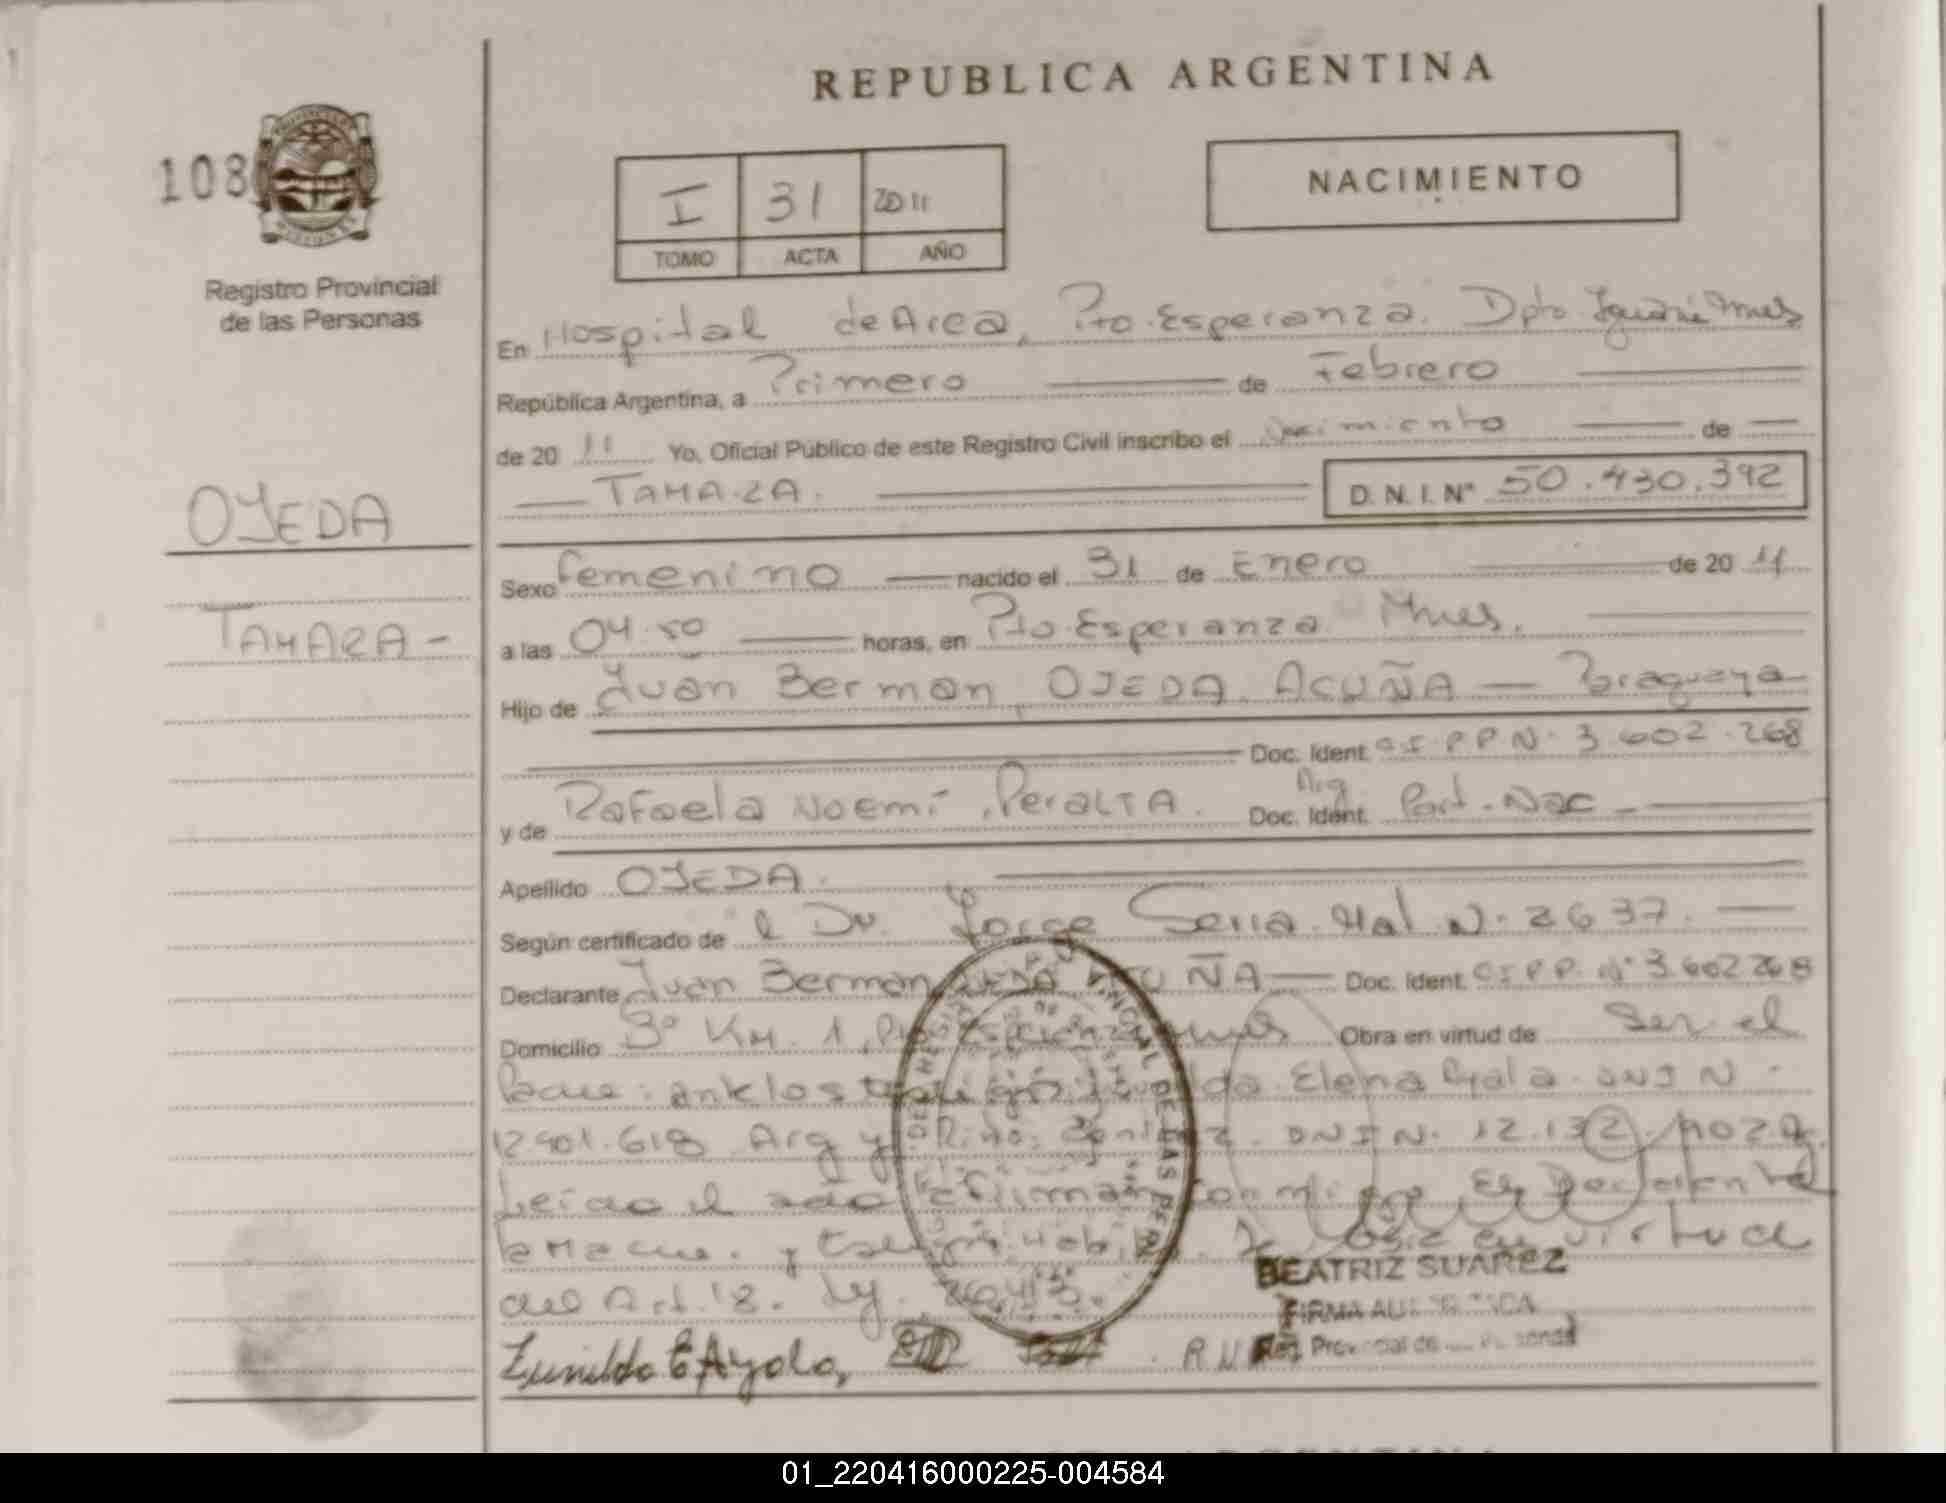 REPUBLICA ARGENTINA
108
I 31 2011
TOMO ACTA AÑO
NACIMIENTO
Registro Provincial
de las Personas
En Hospital de Area, Pto. Esperanza. Dpto Iguazú Mnes
República Argentina, a Primero de Febrero
de 20 11 Yo, Oficial Público de este Registro Civil inscribo el Nacimiento de
TAMARA. D. N. I. N° 50.430.392
OJEDA
TAMARA -
Sexo femenino nacido el 31 de Enero de 20 11
a las 04.50 horas, en Pto Esperanza Mnes.
Hijo de Juan Berman, OJEDA, ACUÑA — Paraguaya
Doc. Ident. C.I. P P N. 3.602.268
y de Rafaela Noemí, PERALTA. Arg Doc. Ident. Part. Nac -
Apellido OJEDA.
Según certificado de el Dr. Jorge Mal N. 2637.
Declarante Juan Berman OJEDA ACUÑA Doc. Ident. C.I P.P. N° 3.602268
Domicilio B° KM. 1, Pto Esperanza Mnes Obra en virtud de Ser el
Padre. ante los testigos Elena Ayala. DNI N.
Arg y DNI N. 12.132.
Leido el acta firman conmigo El Declarante
y testigos
del Art. 18. Ley.
BEATRIZ SUAREZ
FIRMA
Reg. Provincial de